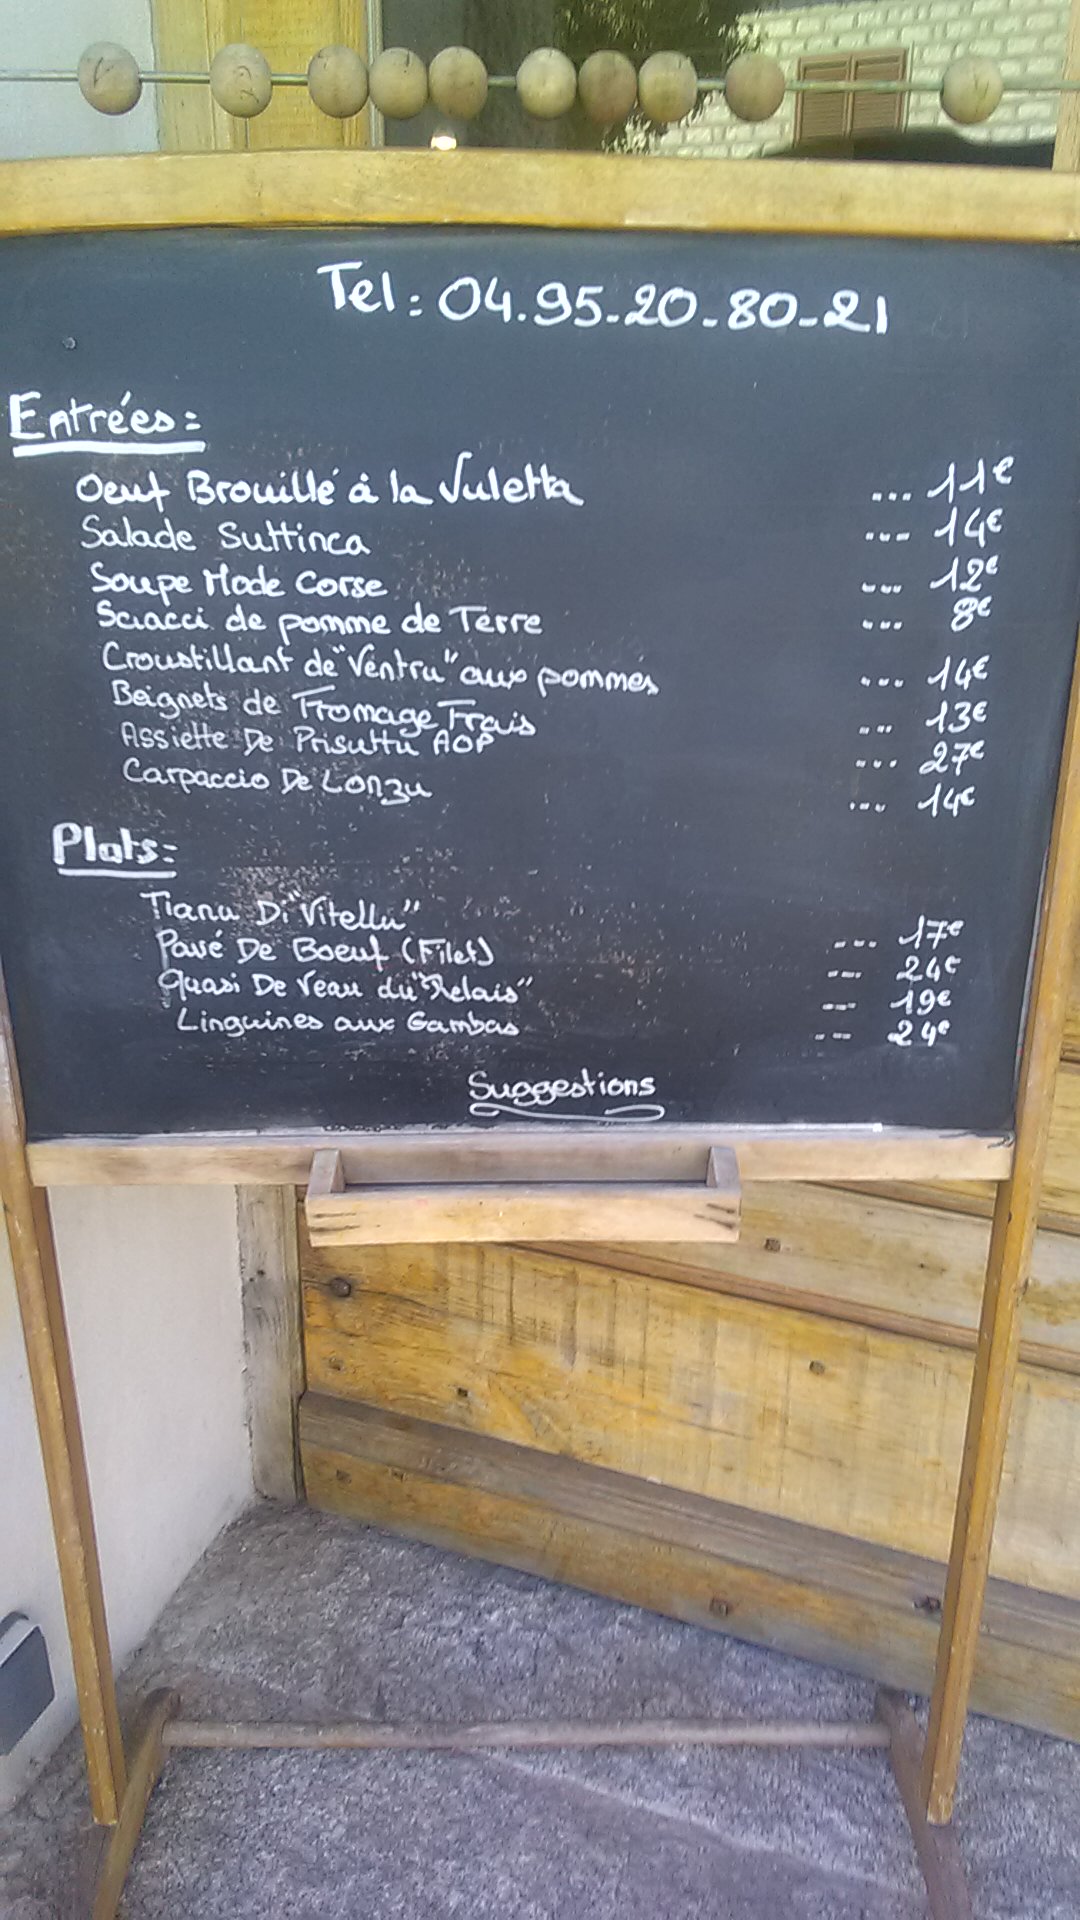 Tel: 04.95-20-80-21
Entrées:
Oeuf Brouillé à la Vuletta ... 11€
Salade Suttinca ... 14€
Soupe Mode Corse ... 12€
Sciacci de pomme de Terre ... 8€
Croustillant de "Ventru" aux pommes ... 14€
Beignets de Fromage Frais ... 13€
Assiette De Prisuttu AOP ... 27€
Carpaccio De Lonzu ... 14€
Plats:
Tianu Di "Vitellu" ... 17€
Pavé De Boeuf (Filet) ... 24€
Quasi De Veau du "Relais" ... 19€
Linguines aux Gambas ... 24€
Suggestions